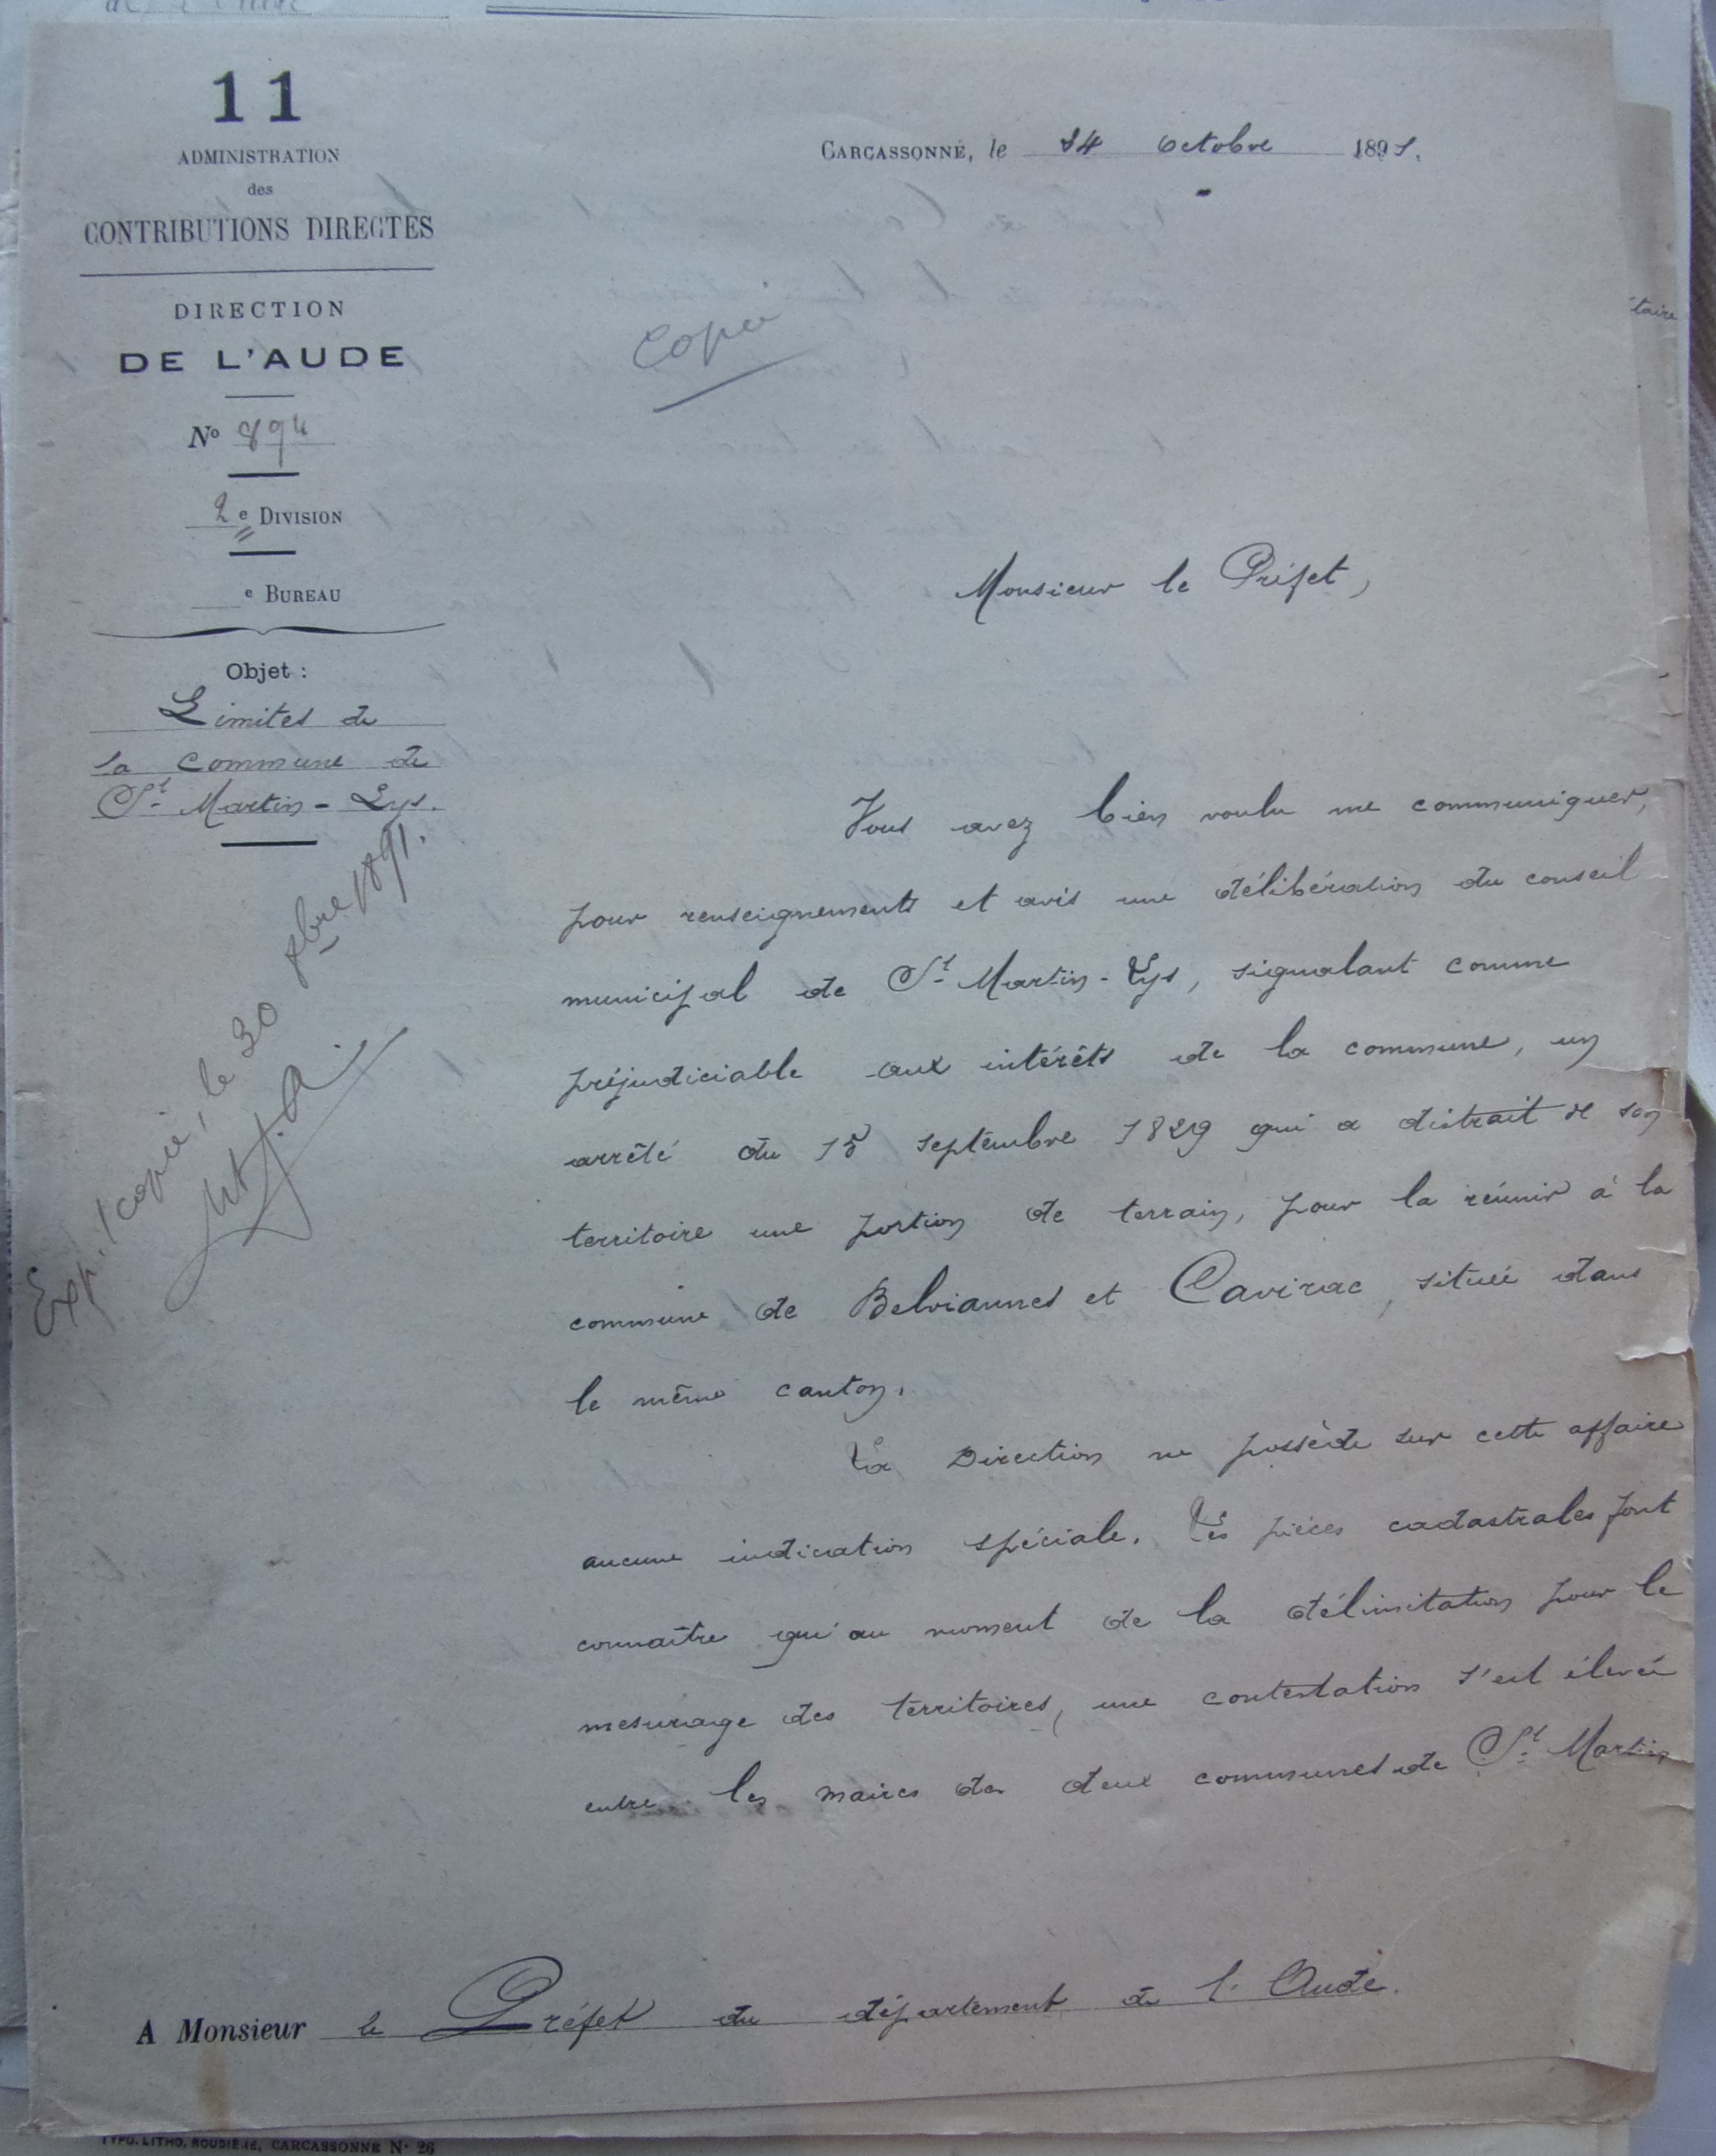 11
ADMINISTRATION
des
CONTRIBUTIONS DIRECTES
DIRECTION
DE L'AUDE
No 894
2e DIVISION
e BUREAU
Objet :
Limites de
la commune de
St Martin - Lys.
Exp. copie, le 30 8bre 1891.
CARCASSONNE, le 24 octobre 1891.
Copie
Monsieur le Préfet,
Vous avez bien voulu me communiquer,
pour renseignements et avis une délibération du conseil
municipal de St Martin - Lys, signalant comme
préjudiciable aux intérêts de la commune, un
arrêté du 15 septembre 1829 qui a distrait de son
territoire une portion de terrain, pour la réunir à la
commune de Belviannes et Cavirac, située dans
le même canton.
La Direction ne possède sur cette affaire
aucune indication spéciale. Les pièces cadastrales font
connaître qu'au moment de la délimitation pour le
mesurage des territoires, une contestation s'est élevée
entre les maires des deux communes de St Martin
A Monsieur le Préfet du département de l'Aude.
taire
TYPO. LITHO. ROUDIERE, CARCASSONNE N° 26